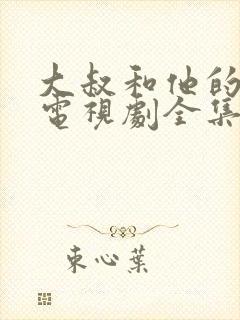 大叔和他的
電視劇全集
東心葉